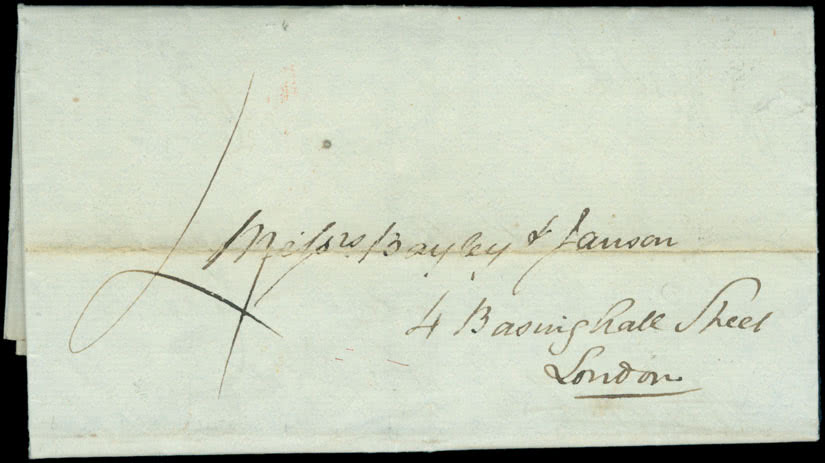 Messrs Bayley & Janson
4 Basinghall Street
London